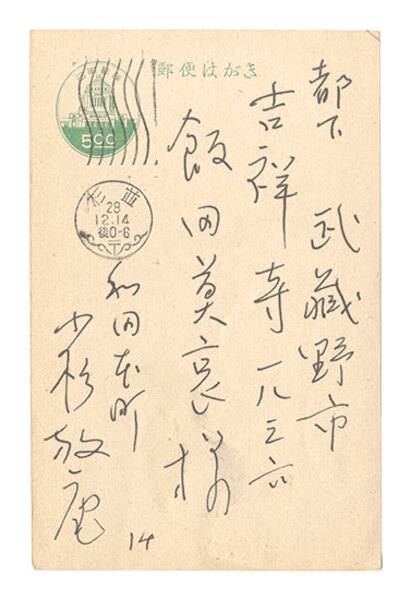 郵便はがき
500
杉並
28
12.14
後0-6
都下 武蔵野市
吉祥寺一八三六
飯田莫哀様
和田本町
小杉放庵
14